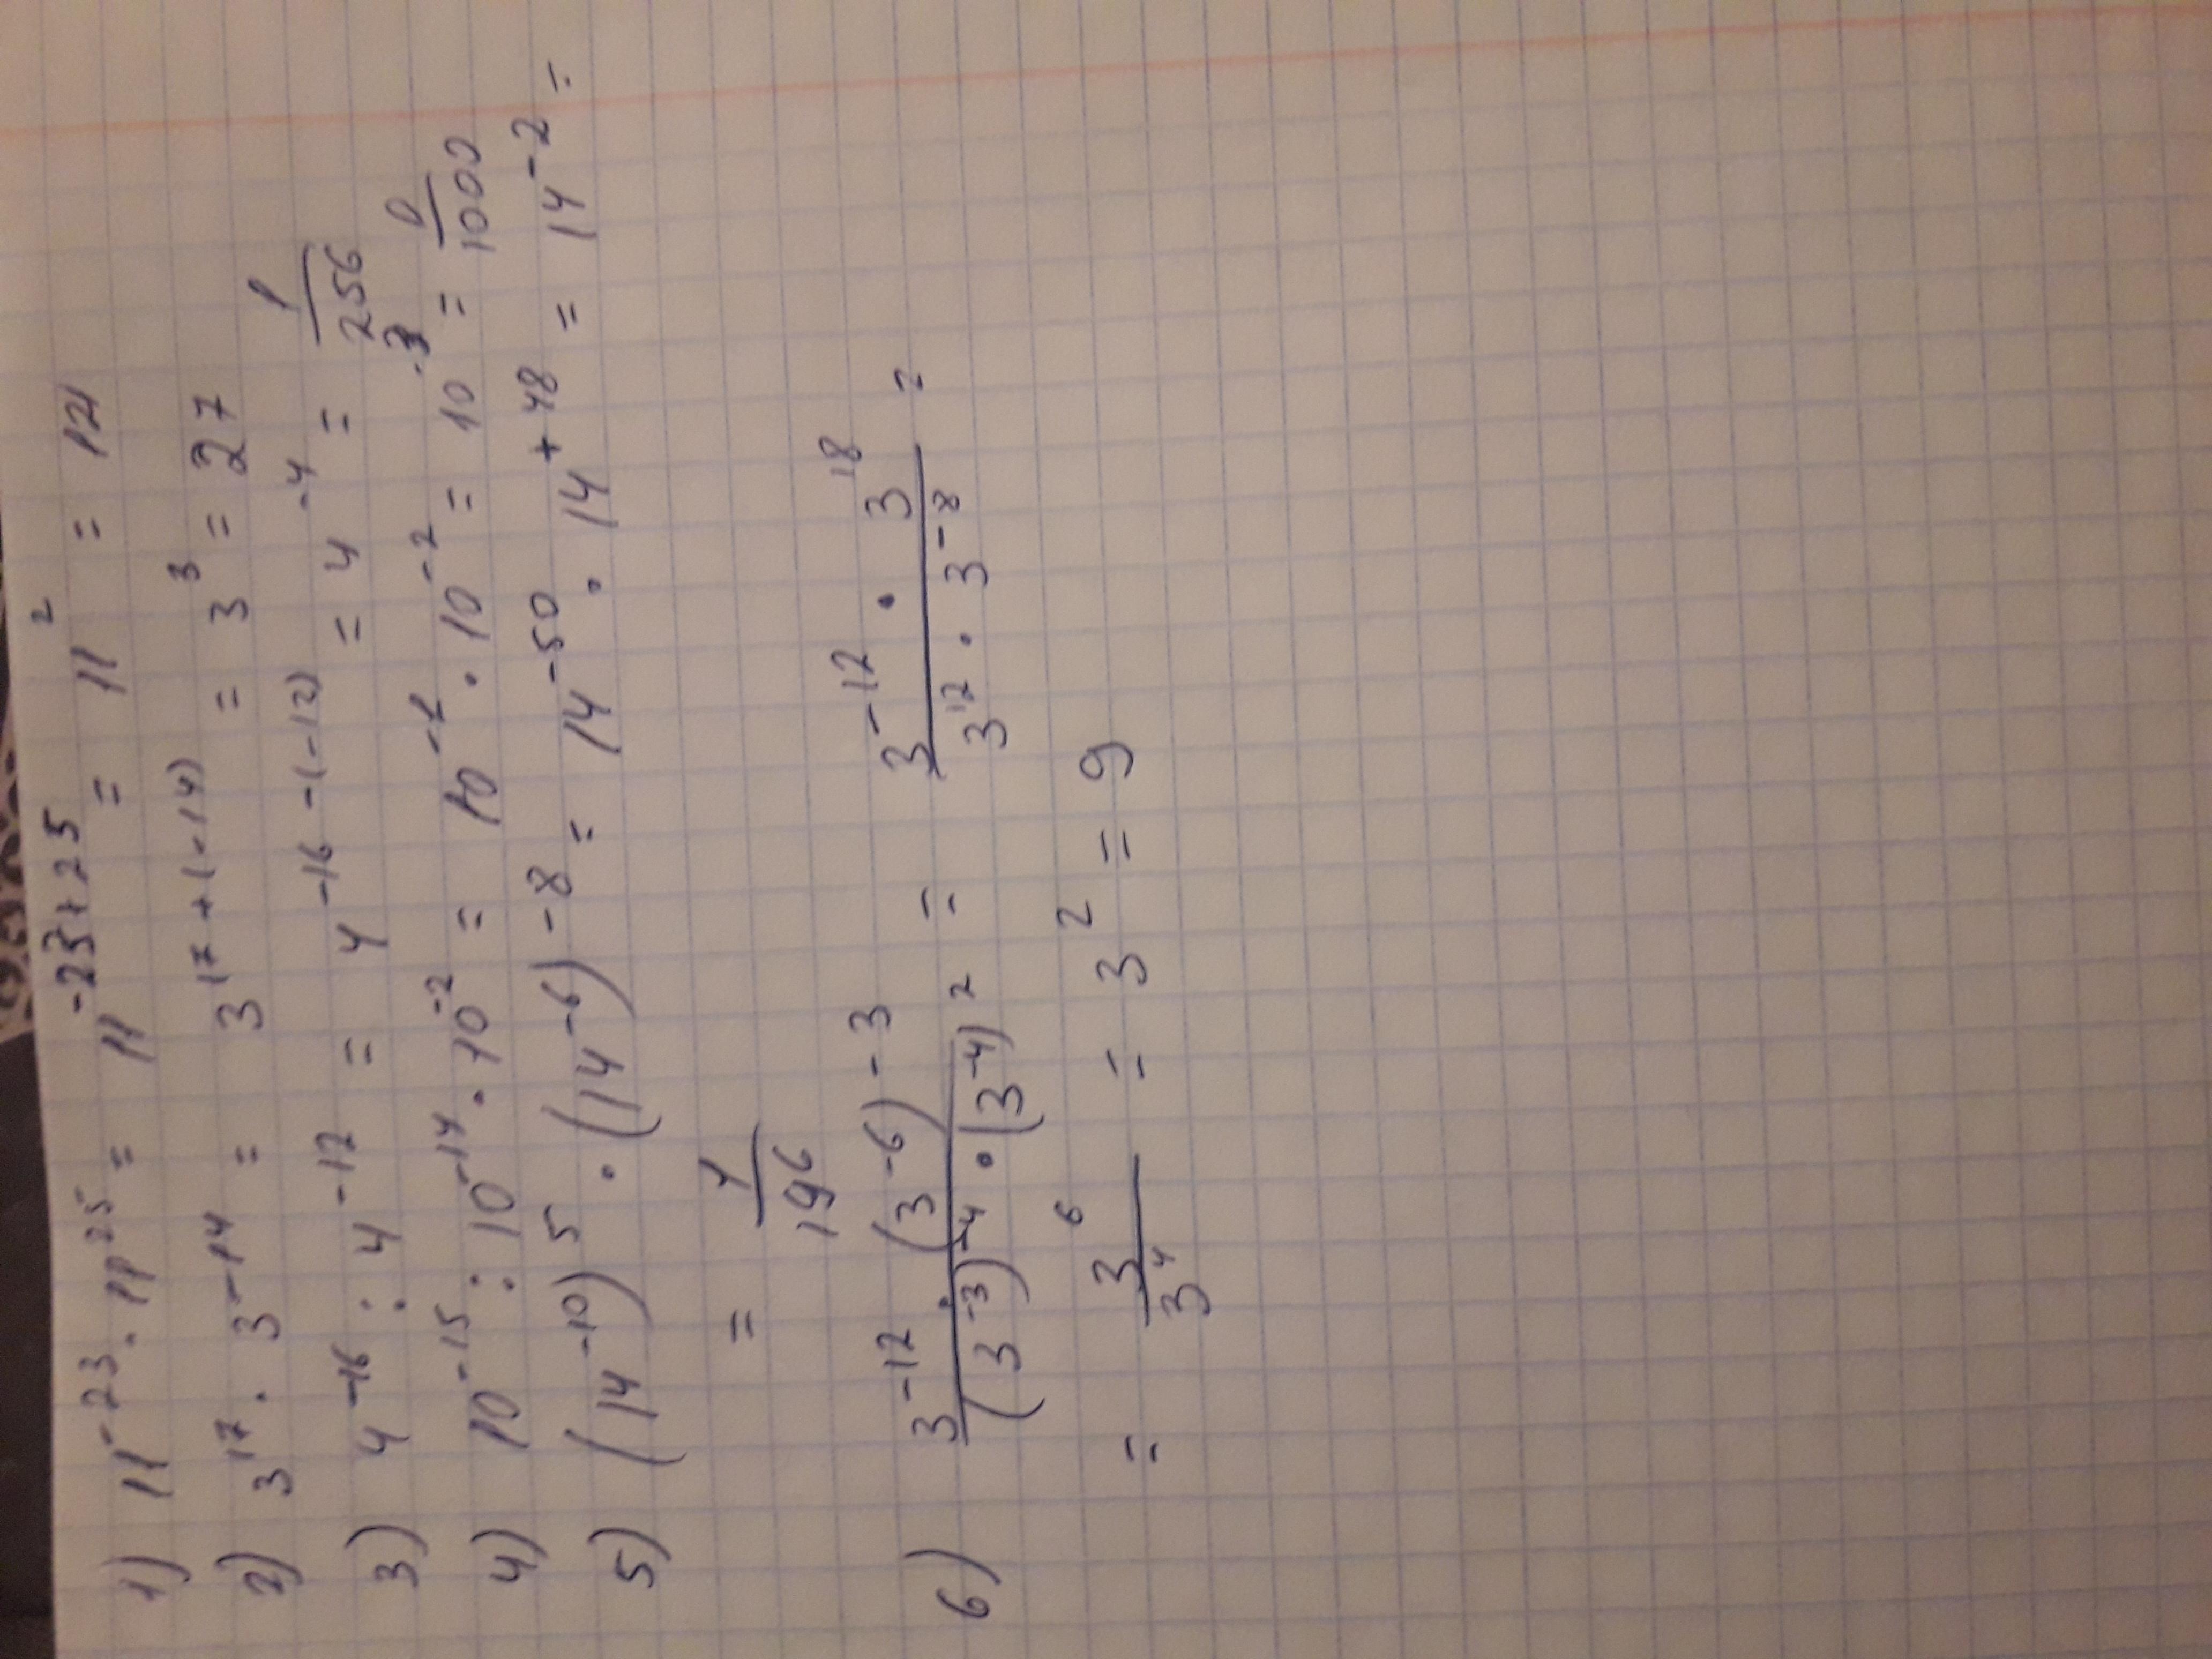 1) 11⁻²³ · 11²⁵ = 11⁻²³⁺²⁵ = 11² = 121
2) 3¹⁷ · 3⁻¹⁴ = 3¹⁷⁺⁽⁻¹⁴⁾ = 3³ = 27
3) 4⁻¹⁶ : 4⁻¹² = 4⁻¹⁶⁻⁽⁻¹²⁾ = 4⁻⁴ = 1/256
4) 10⁻¹⁵ : 10⁻¹⁴ · 10⁻² = 10⁻¹ · 10⁻² = 10⁻³ = 1/1000
5) (14⁻¹⁰)⁵ · (14⁻⁶)⁻⁸ = 14⁻⁵⁰ · 14⁺⁴⁸ = 14⁻² =
= 1/196
6) (3⁻¹² · (3⁻⁶)⁻³)/((3⁻³)⁻⁴ · (3⁻⁴)²) = (3⁻¹² · 3¹⁸)/(3¹² · 3⁻⁸) =
= 3⁶/3⁴ = 3² = 9